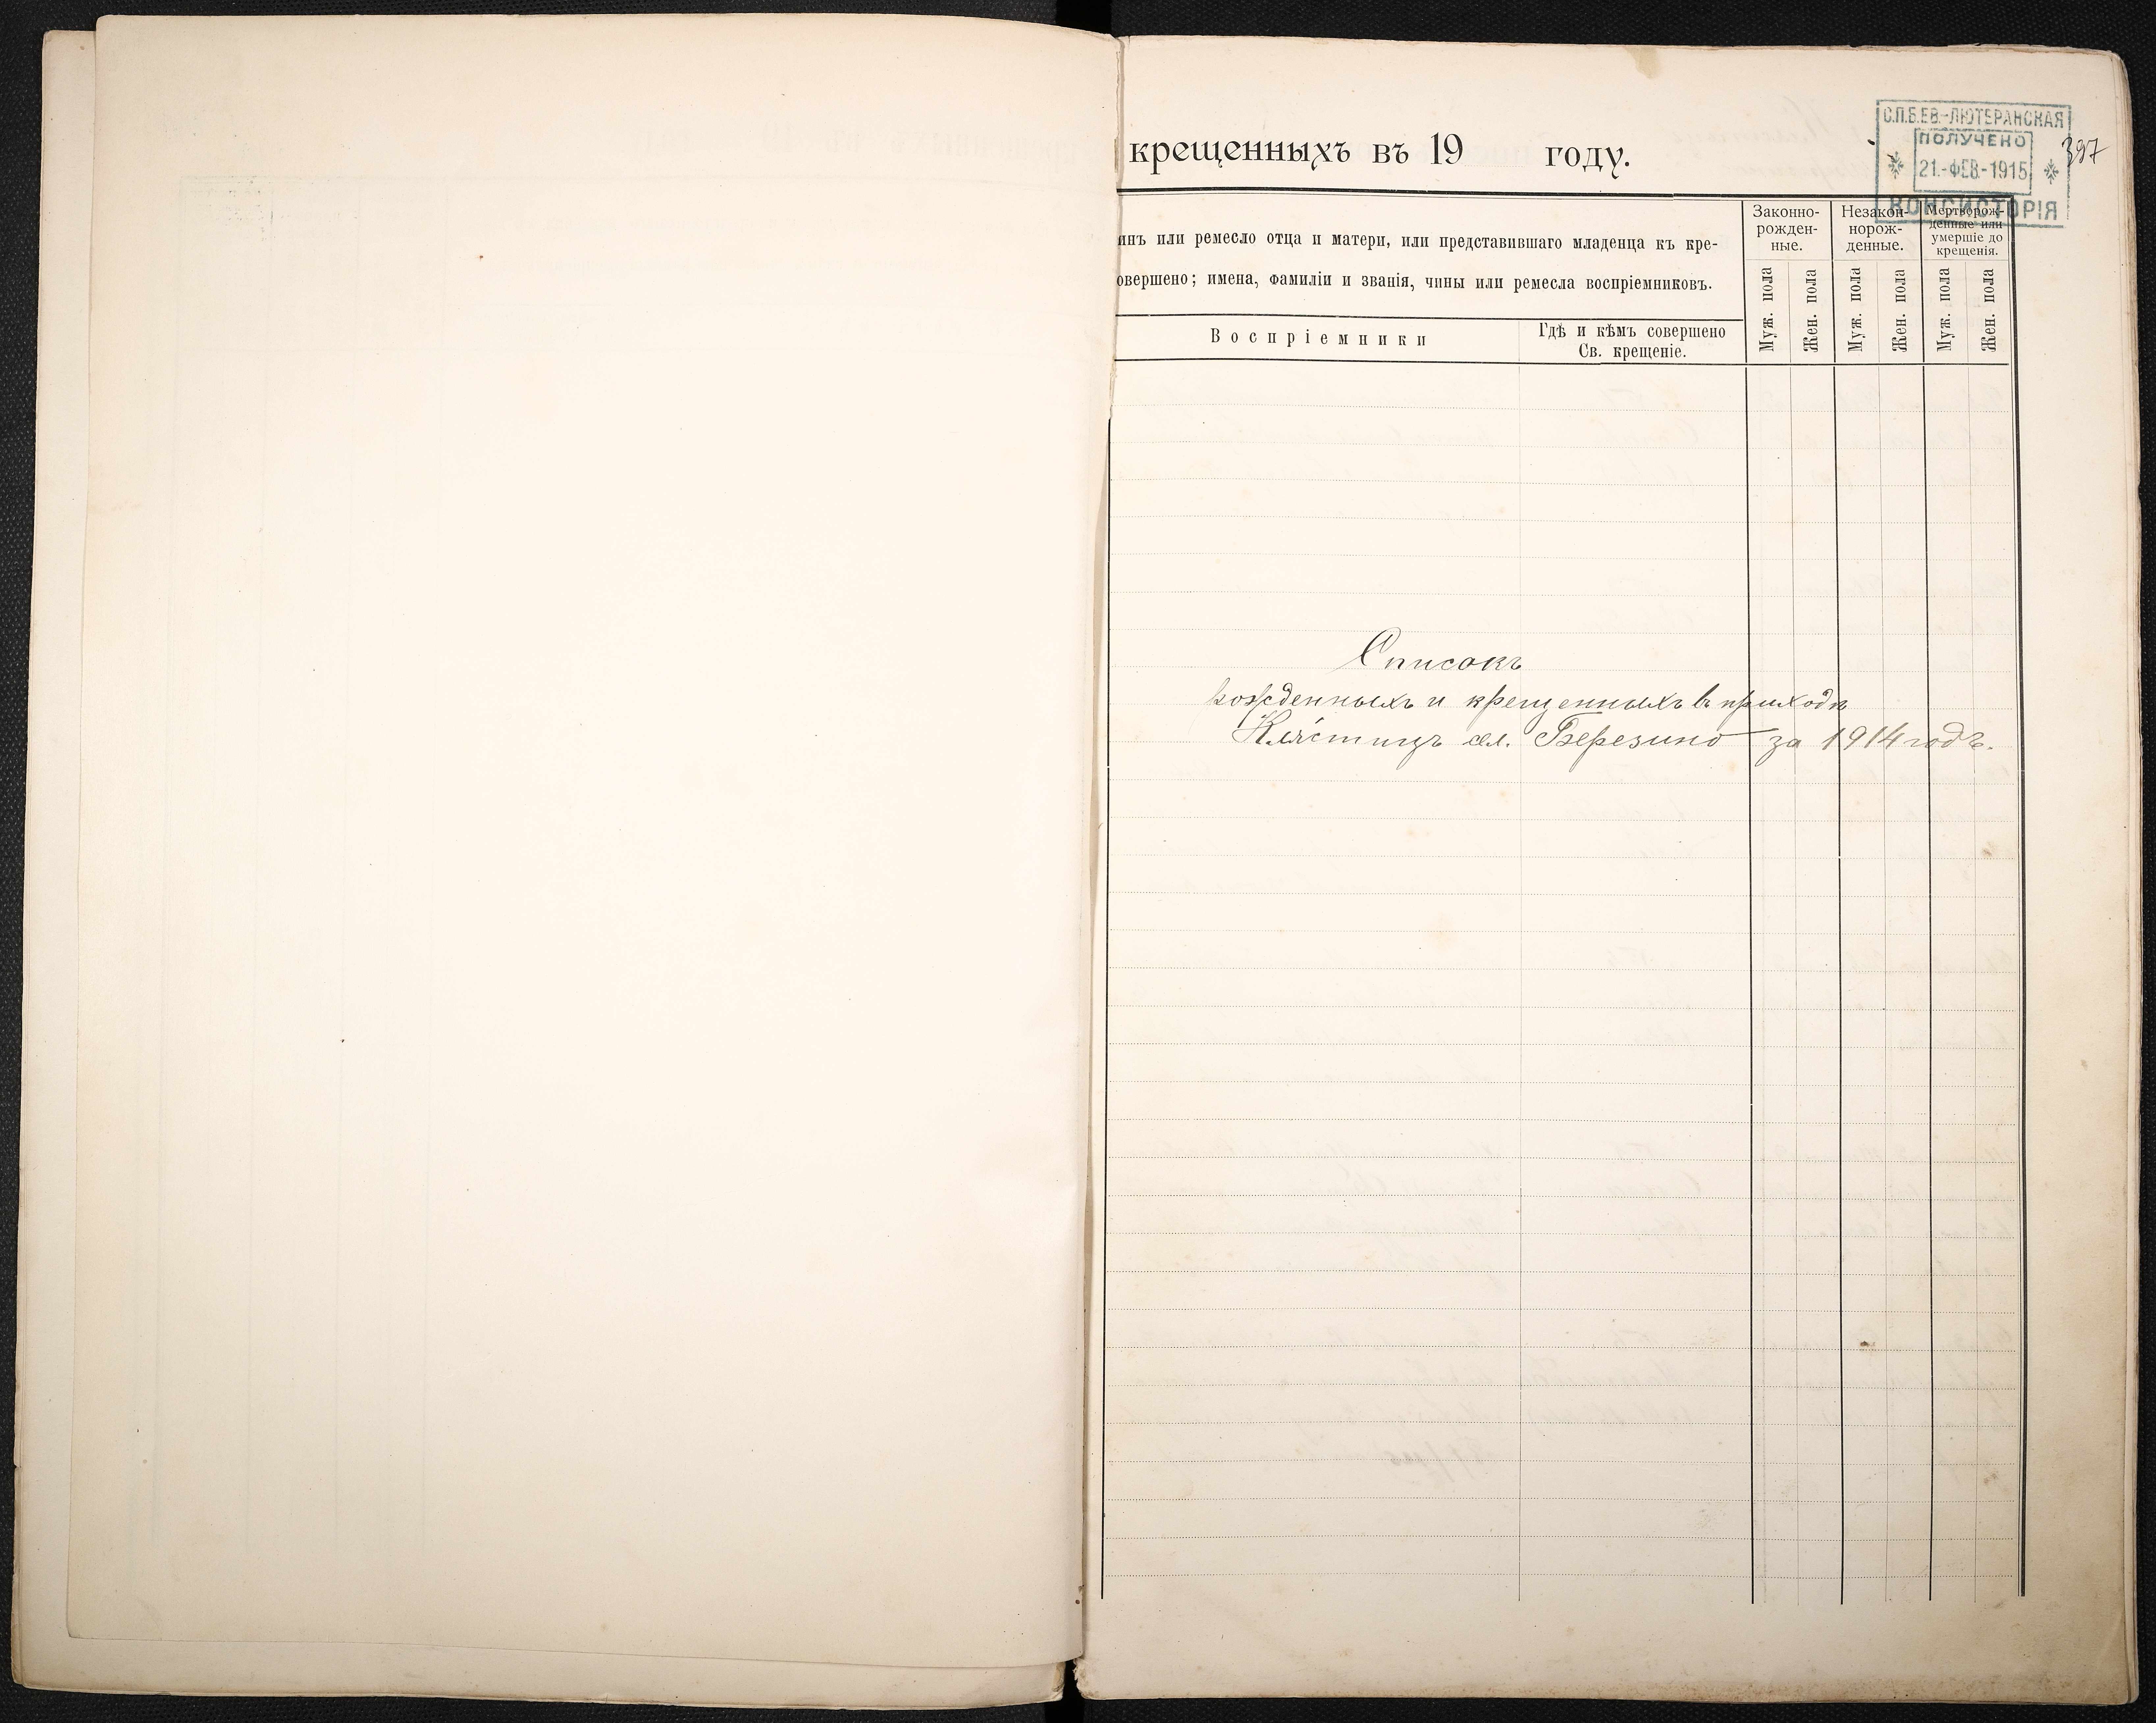 крещенныхъ въ 19 году.
С.П.Б.ЕВ.-ЛЮТЕРАНСКАЯ
ПОЛУЧЕНО
21.-ФЕВ.-1915
КОНСИСТОРІЯ
397
инъ или ремесло отца и матери, или представившаго младенца къ кре-
овершено; имена, фамиліи и званія, чины или ремесла воспріемниковъ.
Воспріемники
Гдѣ и кѣмъ совершено
Св. крещеніе.
Законно-
рожден-
ные.
Незакон-
норож-
денные.
Мертворож-
денные или
умершіе до
крещенія.
Муж. пола
Жен. пола
Муж. пола
Жен. пола
Муж. пола
Жен. пола
Списокъ
рожденныхъ и крещенныхъ въ приходѣ
Клястицъ сел. Березино за 1914 годъ.